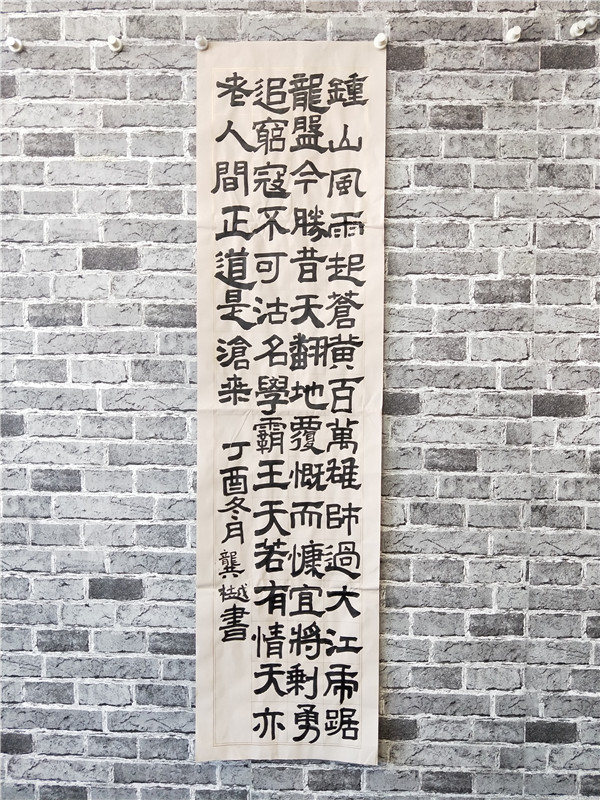 鍾山風雨起蒼黄百萬雄師過大江虎踞
龍盤今勝昔天翻地覆慨而慷宜將剩勇
追窮寇不可沽名學霸王天若有情天亦
老人間正道是滄桒
丁酉冬月龔樾書